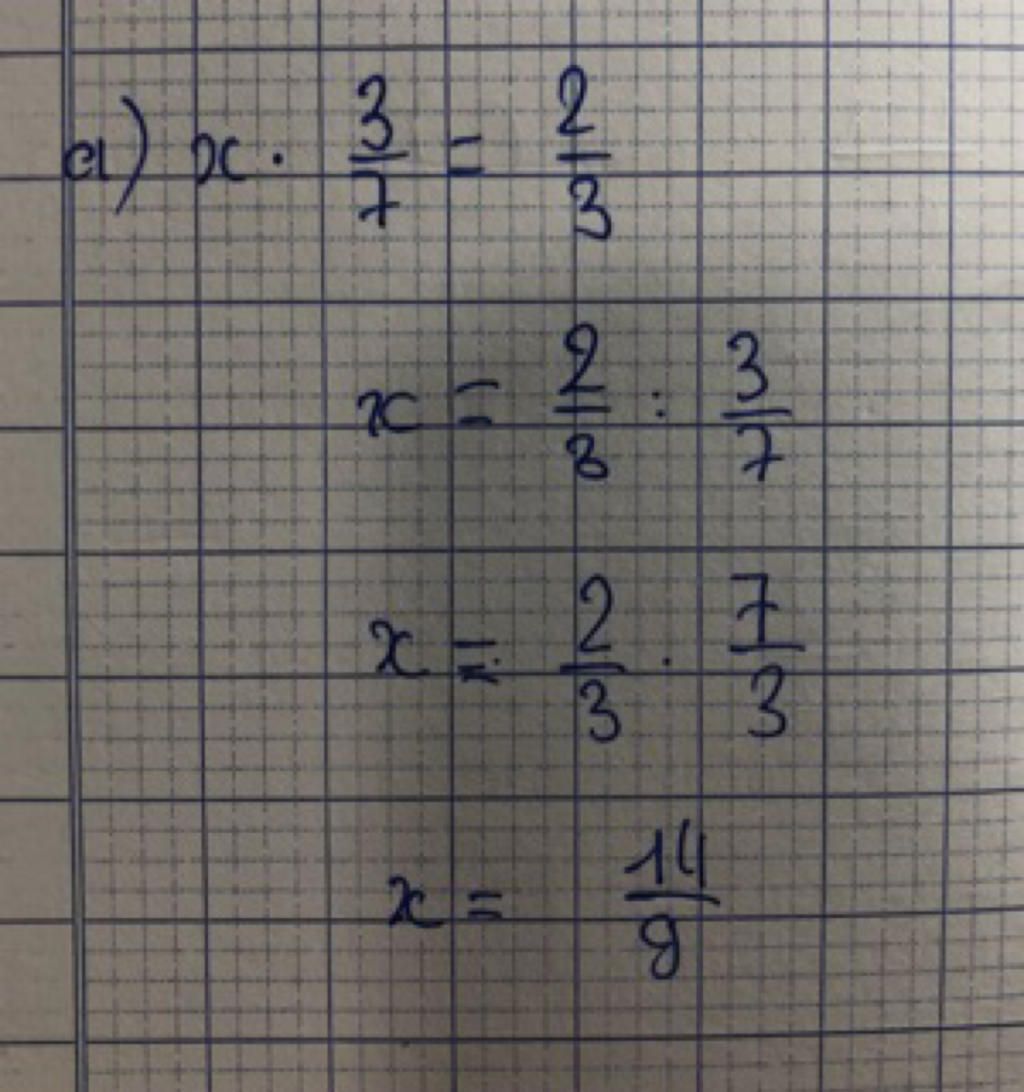 a) x · 3/7 = 2/3
x = 2/3 : 3/7
x = 2/3 · 7/3
x = 14/9